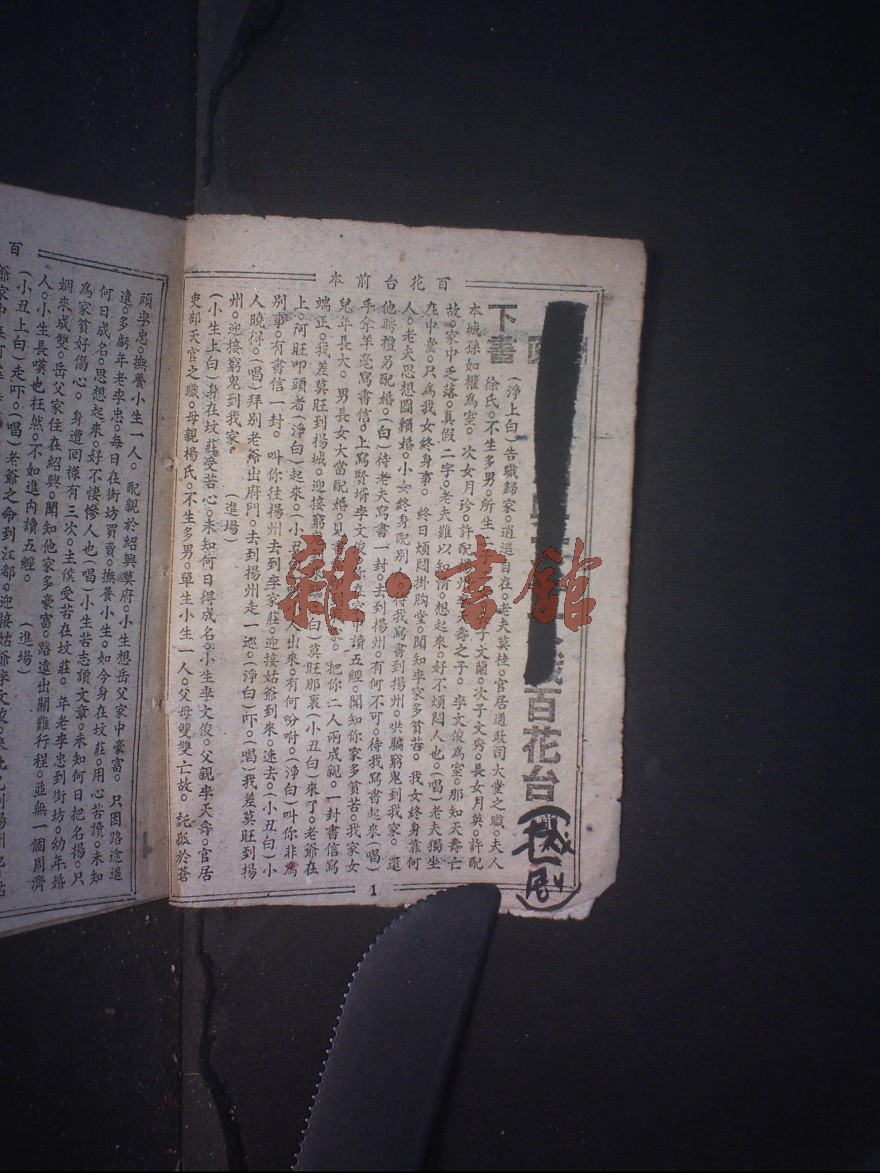 百花台前本
百花台
(越剧)
下書
(淨上白)告職歸家。逍遥自在。老夫莫桂。官居通政司大堂之職。夫人
徐氏。不生多男。所生
子文蘭。次子文秀。長女月英。許配
本城孫如權為室。次女月珍。許配
州李天壽之子。李文俊為室。那知天壽亡
故。家中乏落。真假二字。老夫難以知情。想起來。好不煩悶人也。(唱)老夫獨坐
在中堂。只為我女終身事。終日煩悶掛胸堂。聞知李家多貧苦。我女終身靠何
人。老夫思想圖賴婚。小女終身配別
待我寫書到揚州。哄騙窮鬼到我家。還
他聘禮另配婚。(白)待老夫寫書一封。去到揚州。有何不可。待我寫書起來(唱)
手拿羊毫寫書信。上寫賢壻李文俊。
在家中讀五經。聞知你家多貧苦。我家女
兒年長大。男長女大當配婚。見
把你二人兩成親。一封書信寫
端正。我差莫旺到揚城。迎接窮
白)莫旺那裏(小丑白)來了。老爺在
上。阿旺叩頭者(淨白)起來。(小丑
出來。有何吩咐。(淨白)叫你非為
別事。有書信一封。叫你往揚州去到李家莊。迎接姑爺到來。速去。(小丑白)小
人曉得。(唱)拜别老爺出府門。去到揚州走一巡。(淨白)吓。(唱)我差莫旺到揚
州。迎接窮鬼到我家。(進場)
(小生上白)身在坟莊受苦心。未知何日得成名。小生李文俊。父親李天壽。官居
吏部天官之職。母親楊氏。不生多男。單生小生一人。父母雙雙亡故。託孤於蒼
1
百
頭李忠。撫養小生一人。配親於紹興莫府。小生想岳父家中豪富。只因路途遥
遠。多虧年老李忠。每日在街坊買賣。撫養小生。如今身在坟莊。用心苦讀。未知
何日成名。思想起來。好不悽慘人也(唱)小生苦志讀文章。未知何日把名揚。只
為家貧好傷心。身遭回祿有三次。主僕受苦在坟莊。年老李忠到街坊。幼年婚
姻來成雙。岳父家住在紹興。聞知他家多豪富。路遠出關難行程。並無一個周濟
人。小生長嘆也枉然。不如進內讀五經。(進場)
(小丑上白)走吓。(唱)老爺之命到江都。迎接姑爺李文俊。
雜·書館